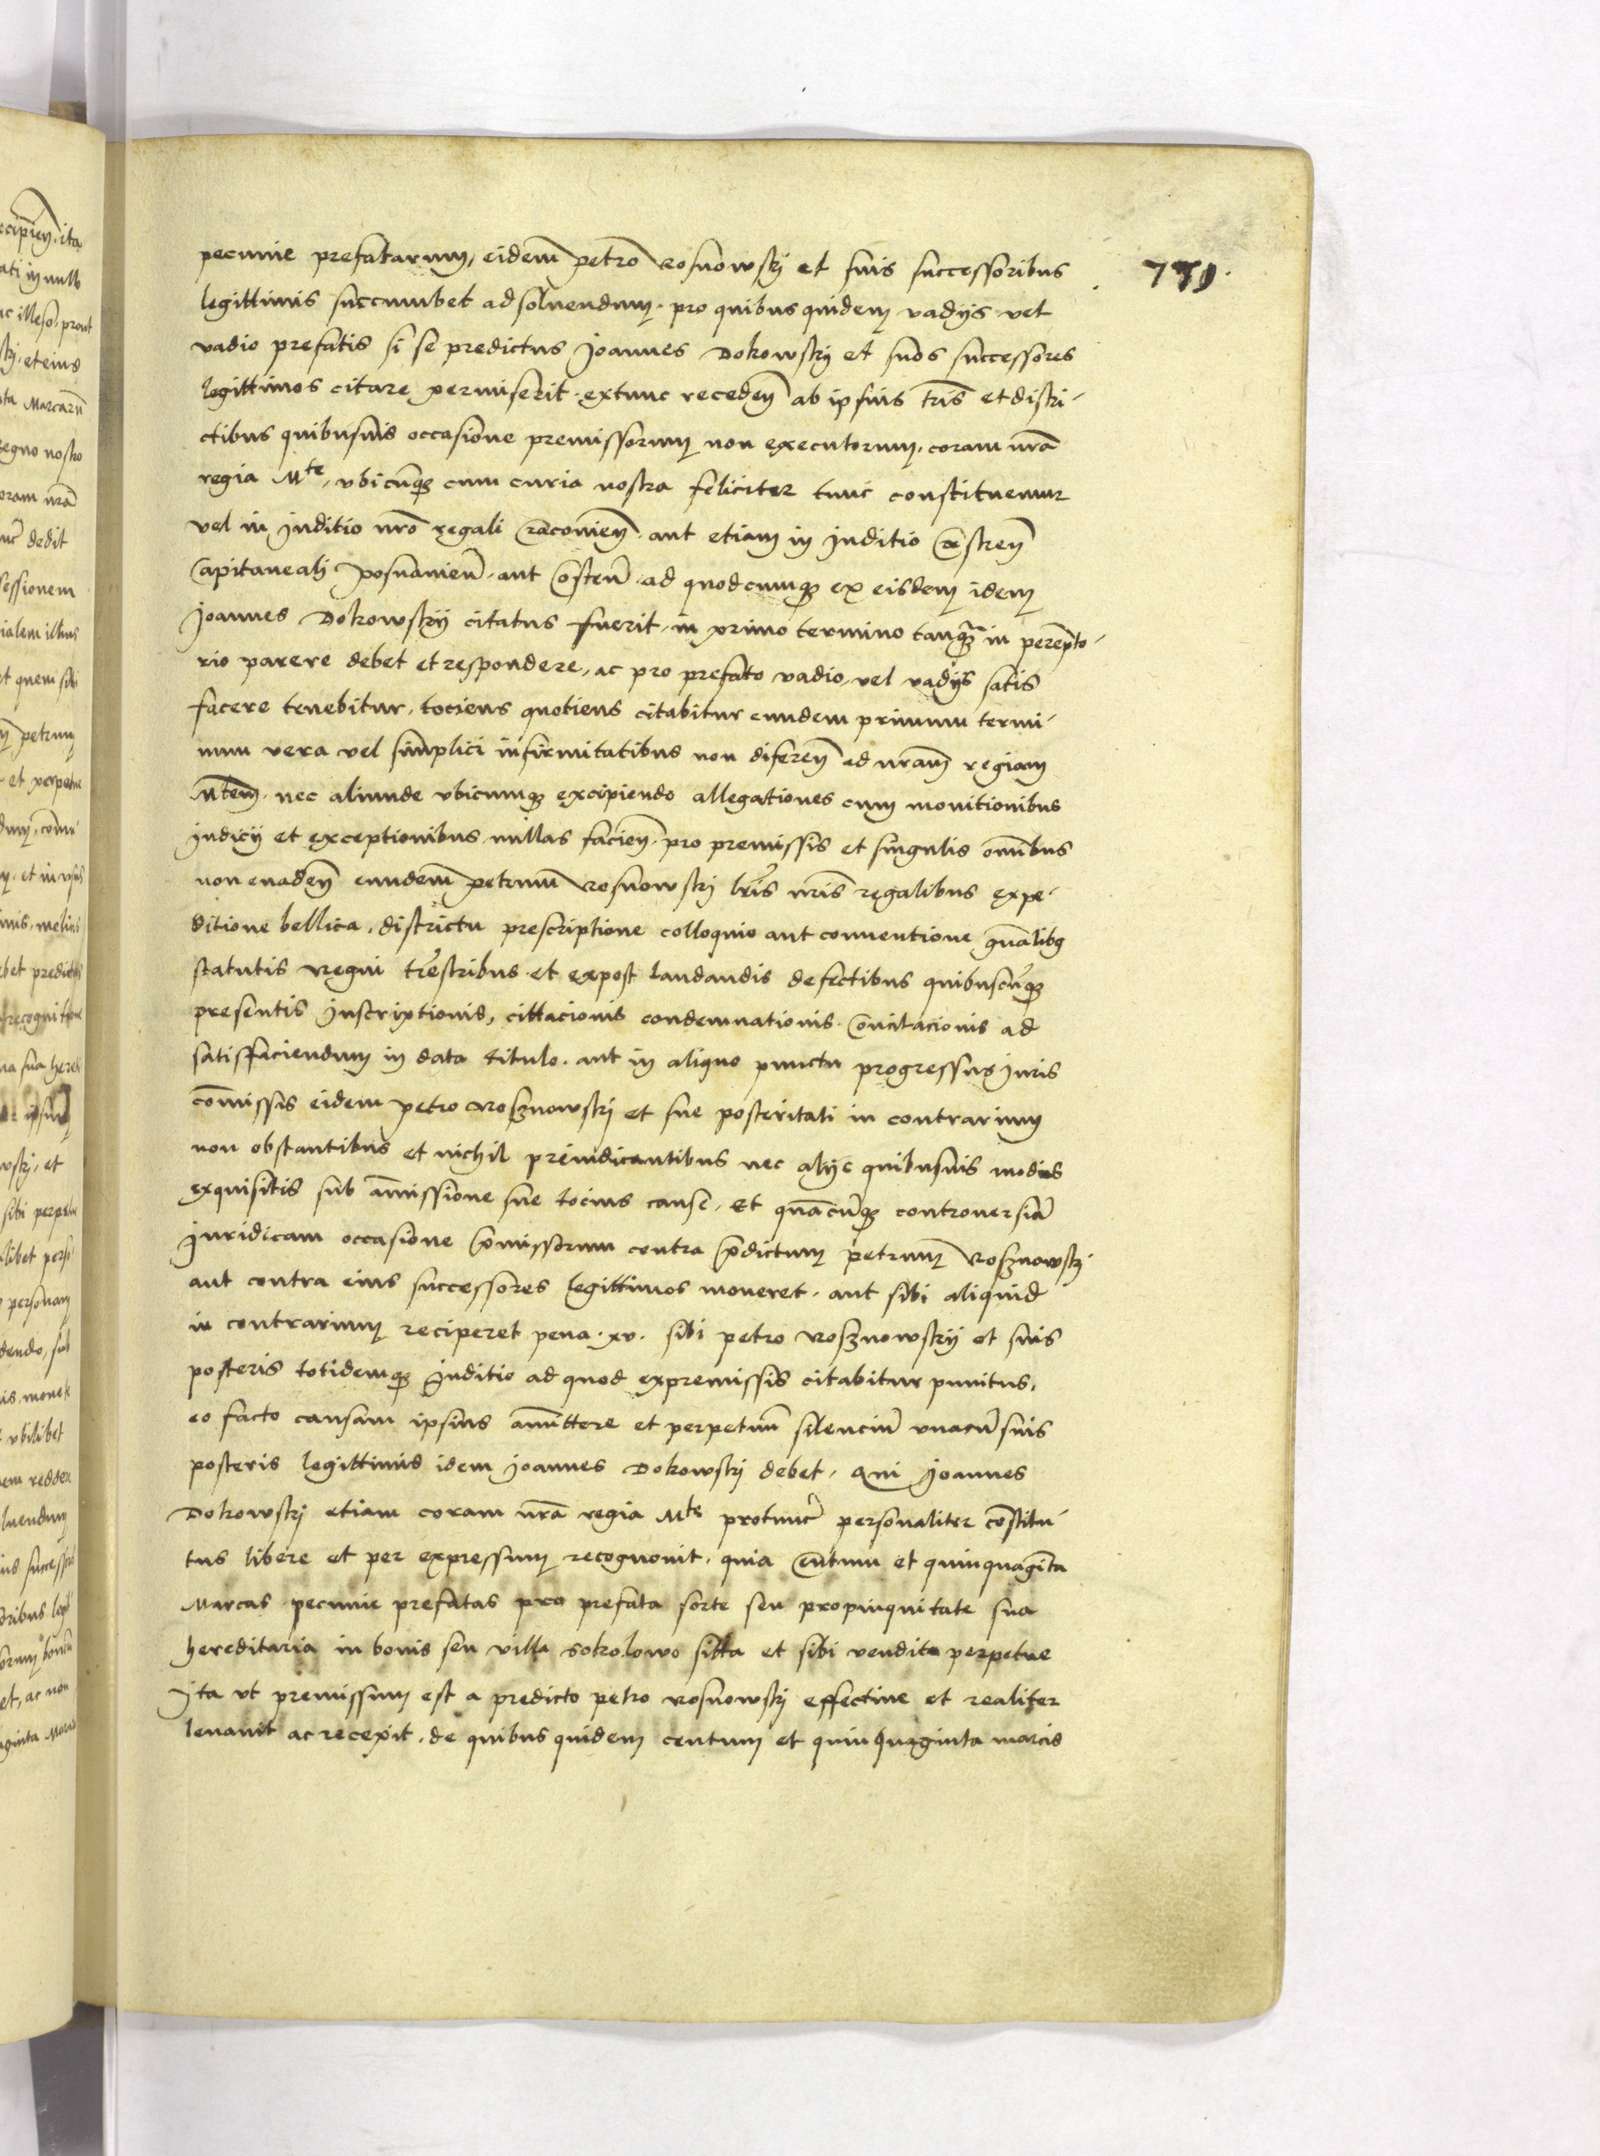 779.
pecunie prefatarum, eidem petro rosnowskj et suis successoribus
legittimis succumbet ad soluendum. pro quibus quidem vadijs vel
vadio prefatis si se predictus Joannes Dokowskj et suos successores
legittimos citare permiserit. extunc receden̄ ab ipsius tr̄is et distri-
ctibus quibusuis occasione premissorum non executorum. coram nr̄a
regia Mte, vbicūq; cum curia nostra feliciter tunc constituemur
vel in Juditio nr̄o regali aut etiam in Juditio
Capitaneali posnanien̄. aut ad quodcumq; ex eisdem idem
Joannes Dokowskij citatus fuerit. in primo termino tanq̄ in perempto-
rio parere debet et respondere, ac pro prefato vadio, vel vadijs satis
facere tenebitur, tociens quotiens citabitur eundem primum termi-
num vera vel simplici infirmitatibus non diferen̄ ad nr̄am regiam
Mtem. nec aliunde vbicumq; excipiendo allegationes cum monitionibus
judicij et exceptionibus nullas facien̄. pro premissis et singulis omībus
non euaden̄ eundem petrum rosnowskj lr̄is nr̄is regalibus expe-
ditione bellica, districtu prescriptione colloquio aut conuentione gn̄alibꝫ
statutis regni tr̄estribus et expost laudandis defectibus quibuscūq;
presentis Inscriptionis, cittacionis condemnationis ad
satisfaciendum in data titulo. aut in aliquo punctu progressus juris
com̄issis eidem petro Rosznowskj et sue posteritati in contrarium
non obstantibus et nichil preiudicantibus nec alijs quibusuis modis
exquisitis sub am̄issione sue tocius cause. et quācūq; controuersiā
Juridicam occasione p̄missorum contra p̄dictum petrum Rosznowskj
aut contra eius successores legittimos moueret. aut sibi aliquid
in contrarium reciperet pena .xv. sibi petro Rosznowskij et suis
posteris totidemq; Juditio ad quod ex premissis citabitur punitus,
eo facto causam ipsius amittere et perpetuū silenciū vnacū suis
posteris legittimis idem Joannes Dokowskj debet. Qui Joannes
Dokowskj etiam coram nr̄a regia Mte protunc personaliter cōstitu-
tus libere et per expressum recognouit. quia centum et quinquaginta
Marcas pecunie prefatas pro prefata sorte seu propinquitate sua
hereditaria in bonis seu villa Sokolowo sitta et sibi vendita perpetue
Ita vt premissum est a predicto petro rosnowskj effectiue et realiter
leuauit ac recepit. de quibus quidem centum et quinquaginta marcis